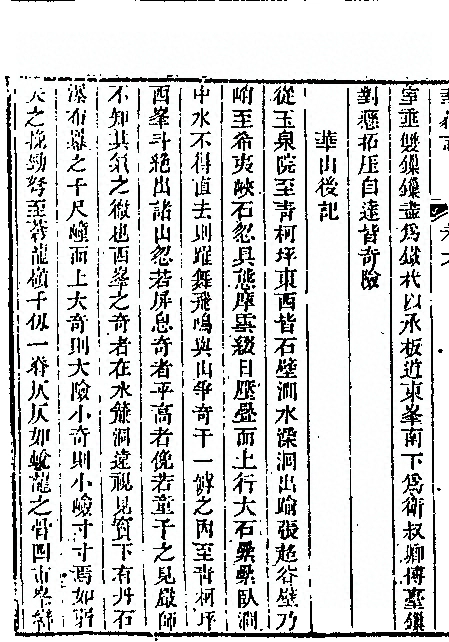 室垂雙鏁鏁盡為橛杙以承板近東峯南下為衛叔卿博臺鏁
對懸拓压自達皆奇險
華山後記
從玉泉院至靑柯坪東西皆石壁澗水深洞出踰張超谷壁乃
峭至希夷峽石忽具態摩雲綴日壓疊而上行大石礨礨臥澗
中水不得直去則躍舞飛鳴與山爭奇于一罅之內至靑柯坪
西峯斗絕出諸山忽若屏息奇者平高者俛若童子之見嚴師
不知其氣之微也西峯之奇者在水簾洞遠視見竇下有丹石
瀑布羅之千尺㠉而上大奇則大險小奇則小險寸寸焉如弱
夫之挽勁弩至蒼龍嶺千仞一脊仄仄如蛻龍之骨四市峯巒